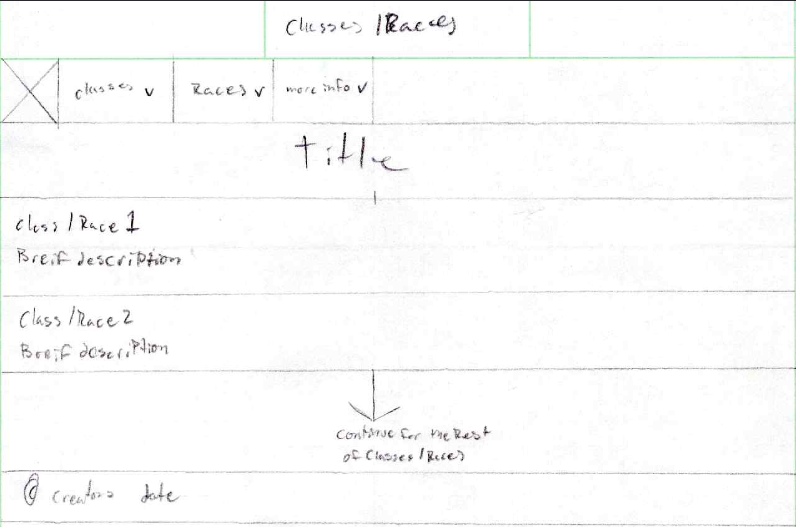 Classes/Races
Classes v
Races v
more info v
title
Class/Race 1
Breif description
Class/Race 2
Breif description
Continue for the Rest
of Classes/Races
© Creators date